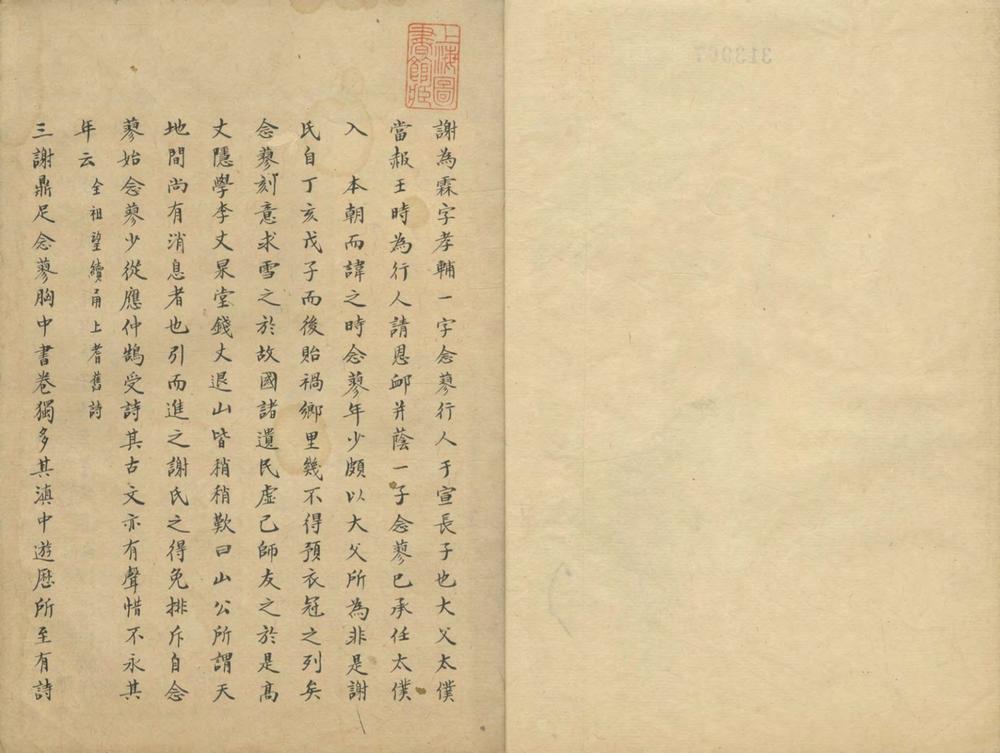 313967
上海圖
書館藏
謝為霖字孝輔一字念蓼行人于宣長子也大父太僕
當報王時為行人請恩卹并蔭一子念蓼已承任太僕
入　本朝而諱之時念蓼年少頗以大父所為非是謝
氏自丁亥戊子而後貽禍鄉里幾不得預衣冠之列矣
念蓼刻意求雪之於故國諸遺民虛己師友之於是高
丈隱學李丈杲堂錢丈退山皆稍稍歎曰山公所謂天
地間尚有消息者也引而進之謝氏之得免排斥自念
蓼始念蓼少從應仲鵠受詩其古文亦有聲惜不永其
年云　全祖望續甬上耆舊詩
三謝鼎足念蓼胸中書卷獨多其滇中遊歷所至有詩